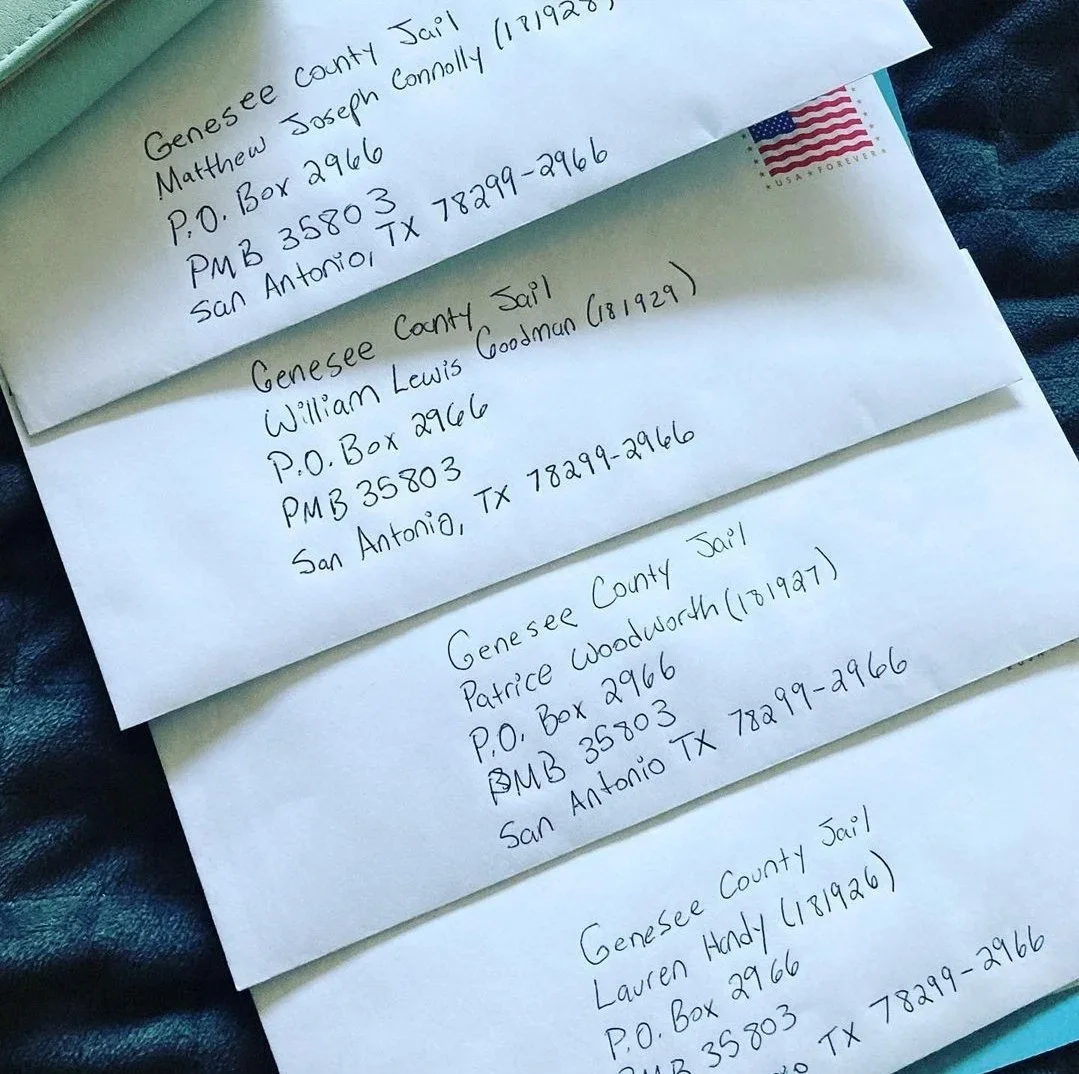 Genesee County Jail
Matthew Joseph Connolly (181928)
P.O. Box 2966
PMB 35803
San Antonio, TX 78299-2966
USA FOREVER
Genesee County Jail
William Lewis Goodman (181929)
P.O. Box 2966
PMB 35803
San Antonio, TX 78299-2966
Genesee County Jail
Patrice Woodworth (181927)
P.O. Box 2966
PMB 35803
San Antonio TX 78299-2966
Genesee County Jail
Lauren Handy (181926)
P.O. Box 2966
PMB 35803
TX 78299-2966